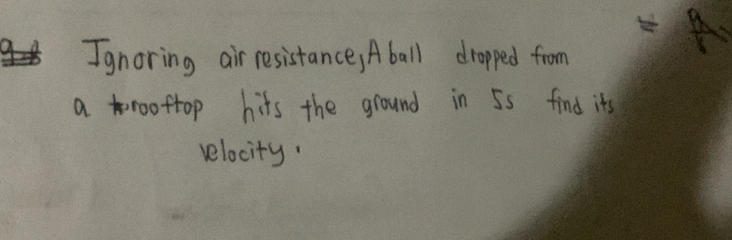 Ignoring air resistance, A ball dropped from
a rooftop hits the ground in 5s find its
velocity.